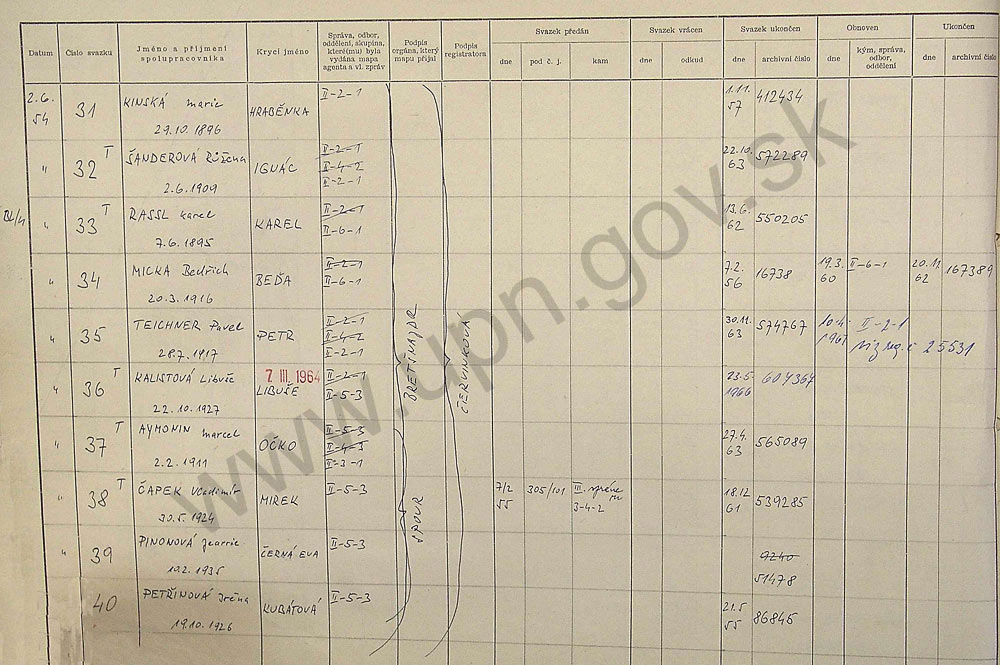 Datum | Číslo svazku | Jméno a příjmení spolupracovníka | Krycí jméno | Správa, odbor, oddělení, skupina, které(mu) byla vydána mapa agenta a vl. zpráv | Podpis orgána, který mapu přijal | Podpis registrátora | Svazek předán | Svazek vrácen | Svazek ukončen | Obnoven | Ukončen
dne | pod č. j. | kam | dne | odkud | dne | archivní číslo | dne | kým, správa, odbor, oddělení | dne | archivní číslo
2.6. 54 | 31 | KINSKÁ Marie | HRABĚNKA | II-2-1 | 1.11. 57 | 412434
29.10.1896
" | 32 T | ŠANDEROVÁ Růžena | IGNÁC | II-2-1 | 22.10. 63 | 572289
II-4-2
2.6.1909 | II-2-1
" | 33 T | RASSL Karel | KAREL | II-2-1 | 13.6. 62 | 550205
7.6.1895 | II-6-1
" | 34 | MICKA Bedřich | BEĎA | II-2-1 | 7.2. 56 | 16738 | 19.3. 60 | II-6-1 | 20.11. 62 | 167389
20.3.1916 | II-6-1
" | 35 | TEICHNER Pavel | PETR | II-2-1 | 30.11. 63 | 574767 | 10.4. 1961 | II-2-1
II-4-2 | viz reg. č 25531
28.7.1917 | II-2-1
" | 36 T | KALISTOVÁ Libuše | 7 III. 1964 | LIBUŠE | II-2-1 | 23.5. 1966 | 604364
22.10.1927 | II-5-3
" | 37 T | AYMONIN Marcel | OČKO | II-5-3 | 27.4. 63 | 565089
II-4-3
2.2.1911 | II-3-1
" | 38 T | ČAPEK Vladimír | MIREK | II-5-3 | 7/2 55 | 305/101 | III. správě | 18.12. 61 | 539285
30.5.1924 | 3-4-2
" | 39 | PINONOVÁ | ČERNÁ EVA | II-5-3 | 9240
10.2.1935 | 51478
40 | PETŘINOVÁ Irena | KUBÁTOVÁ | II-5-3 | 21.5 55 | 86845
19.10.1926
BRETŠNAJDR
SPOUR
ČERVINKOVÁ
www.upn.gov.sk